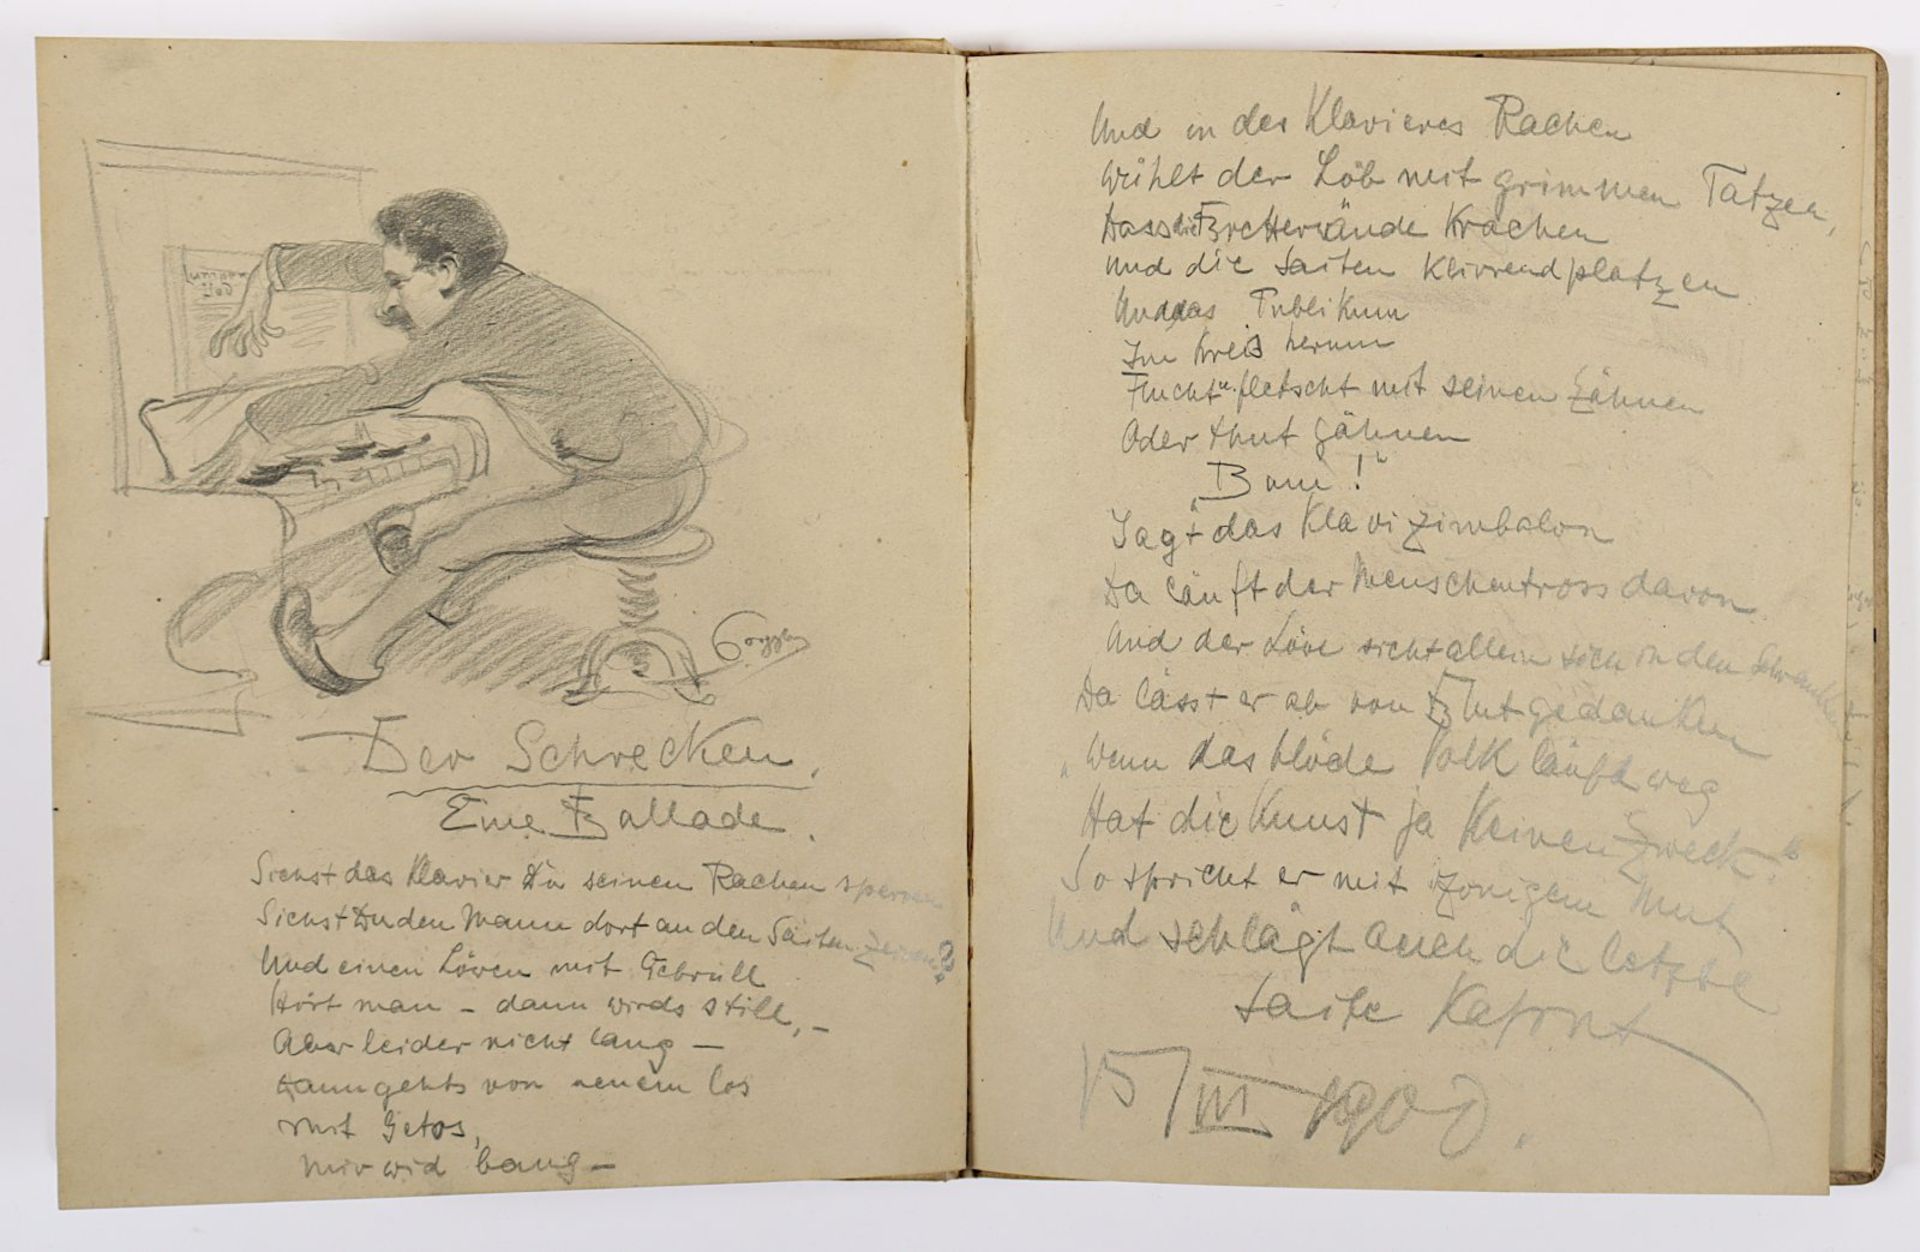 Der Schrecken.
Eine Ballade.
Siehst das Klavier Du seinen Rachen sperren
Siehst Du den Mann dort an den Saiten zerren?
Und einen Löven mit Gebrüll
Hört man – dann wirds still, –
Aber leider nicht lang –
Dann gehts von neuem los
mit Getos,
Mir wid bang –
Und in des Klavieres Rachen
Wühlt der Löb mit grimmen Tatzen,
Dass die Bretterwände krachen
Und die Saiten klirrend platzen
Und das Publikum
Im Kreis herum
Flucht u. fletscht mit seinen Zähnen
Oder thut gähnen
„Bum!“
Sagt das Klavizimbalon
Da läuft der Menschentross davon
Und der Löve sieht allein sich in den Schranken
Da lässt er ab von Blutgedanken
„Wenn das blöde Volk läuft weg
Hat die Kunst ja keinen Zweck.“
So spricht er mit zornigem Mut
Und schlägt auch die letzte
Saite kaput
15/III 1908.